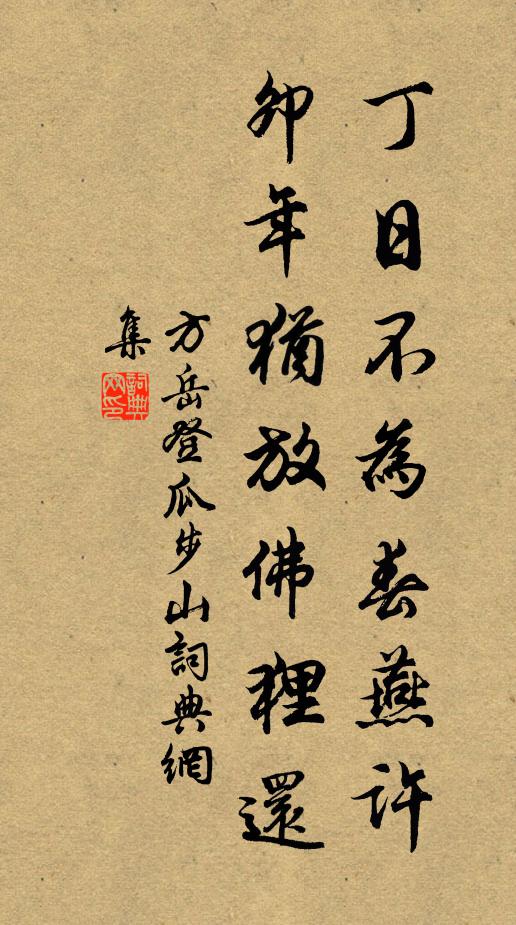 丁日不為春燕許
卯年猶放佛狸還
方岳登瓜步山詞典網
集
詞典網印